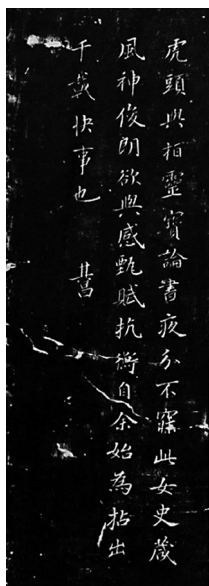 虎頭與桓靈寶論書夜分不寐此女史箴
風神俊朗欲與感甄賦抗衡自余始為拈出
千載快事也　其昌